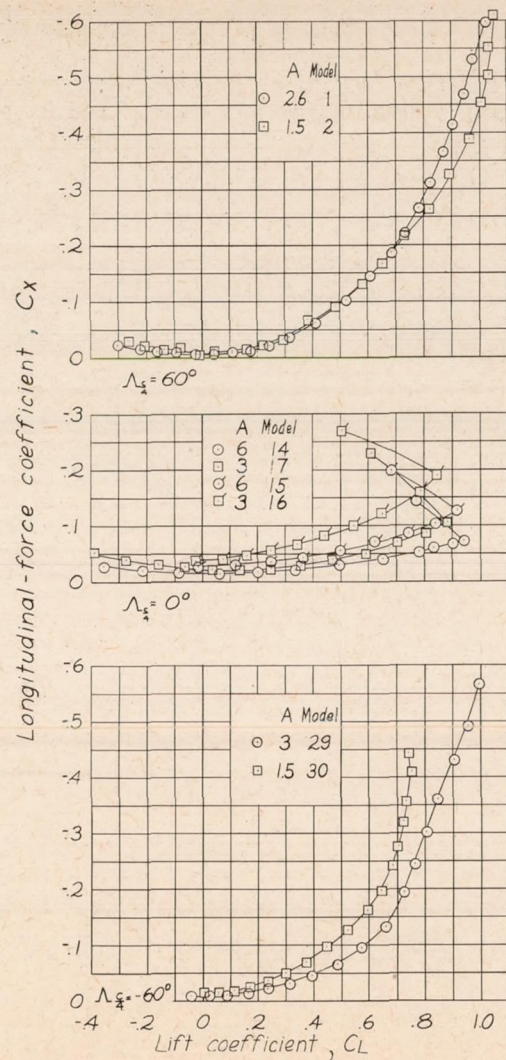 Longitudinal-force coefficient , Cx
-.6
-.5
-.4
-.3
-.2
-.1
0
A Model
2.6 1
1.5 2
Λc/4 = 60°
-.3
-.2
-.1
0
A Model
6 14
3 17
6 15
3 16
Λc/4 = 0°
-.6
-.5
-.4
-.3
-.2
-.1
0
A Model
3 29
1.5 30
Λc/4 = -60°
-.4 -.2 0 .2 .4 .6 .8 1.0
Lift coefficient , CL